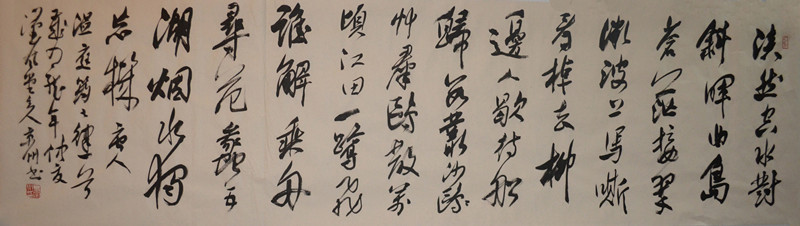 淡然空水對
斜暉曲島
蒼茫接翠
微波上馬嘶
看棹去柳
邊人歇待船
歸數叢沙
艸羣鷗散萬
頃江田一鷺飛
誰解乘舟
尋范蠡五
湖烟水獨
忘機 唐人
温庭筠之律一首
龍年仲夏
主人书